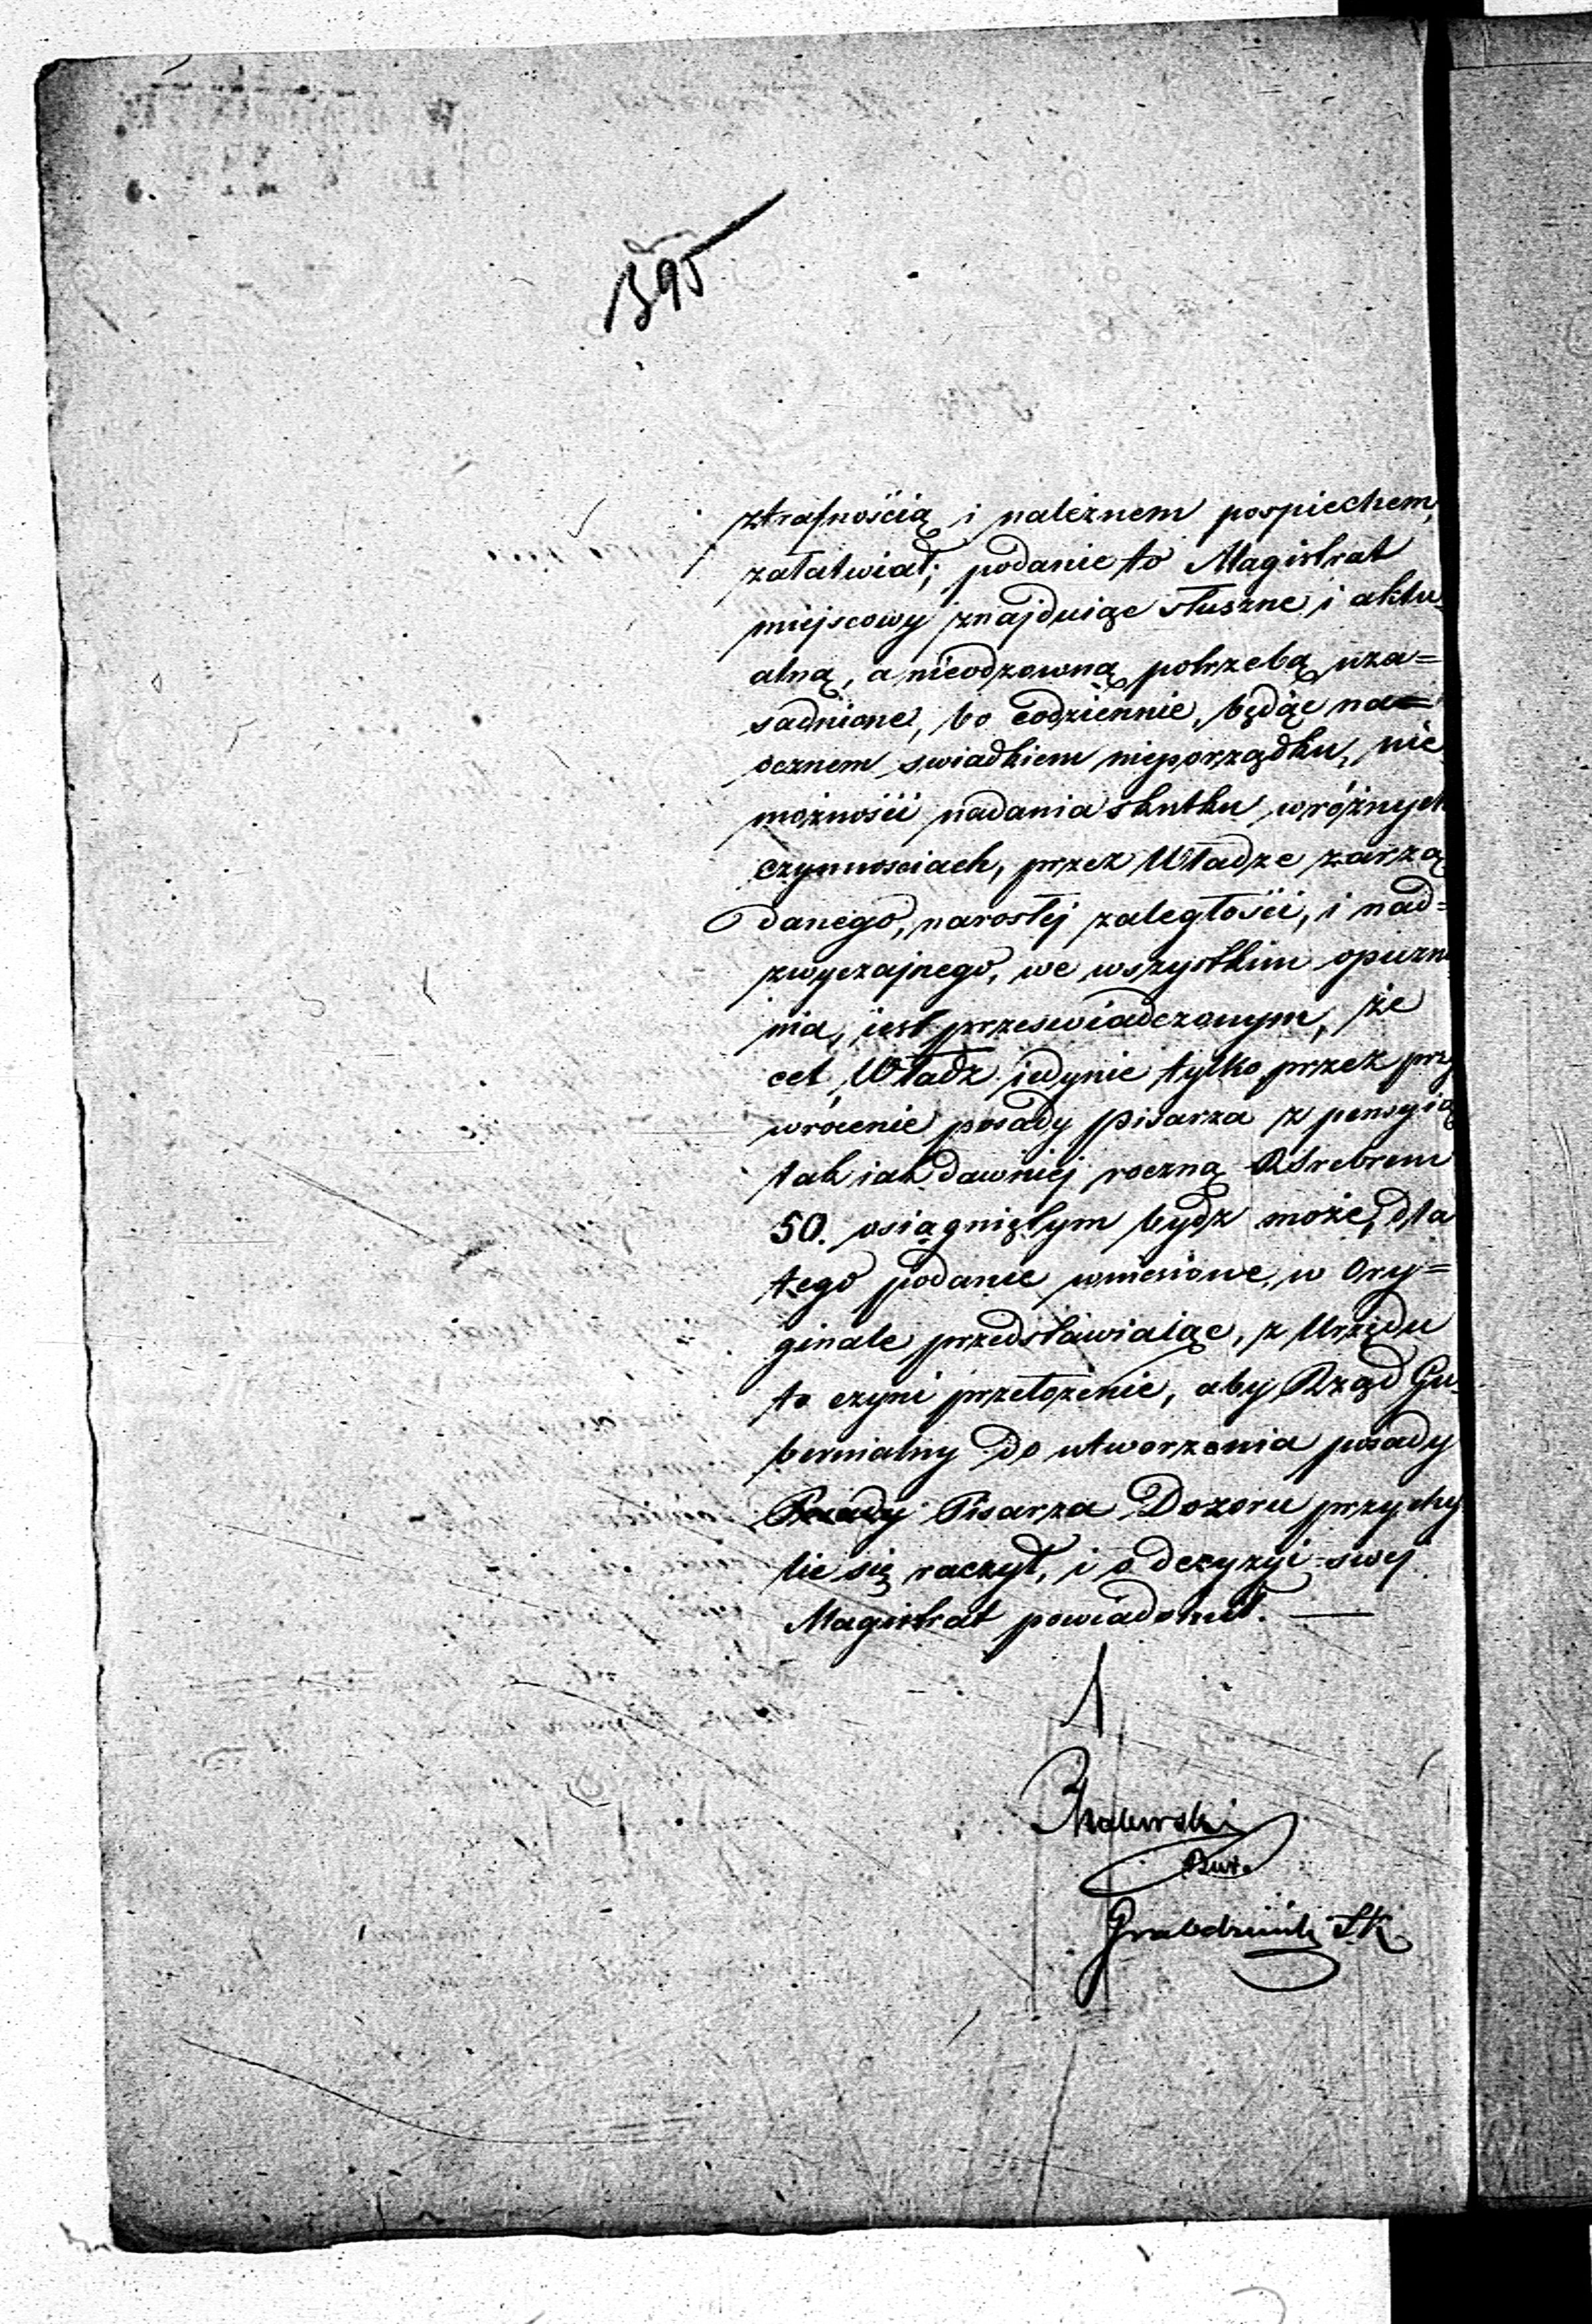 395
ztrafnością i należnem pospiechem,
załatwiał; podanie to Magistrat
miejscowy znajduiąc słuszne i aktu
alną, a nieodzowną potrzebą uza=
sadnione, bo codziennie, będąc na=
ocznem swiadkiem nieporządku, nie
możności nadania skutku w różnych
czynnosciach, przez Władze zarzą
danego, narosłej zaległości, i nad=
zwyczajnego, we wszystkim opuzn
nia, iest przeswiadczonym, że
cel Władz iedynie tylko przez przy
wrócenie posady pisarza z pensyią
tak iak dawniej roczną RSrebrem
50. osiągniętym bydz może, dla
tego podanie wniesione, w Ory=
ginale przedstawiaiąc, z Urzędu
to czyni przełożenie, aby Rząd Gu=
bernialny do utworzenia posady
Pisarza Dozoru przychy
lic się raczył, i o decyzyi swej
Magistrat powiadomił. —